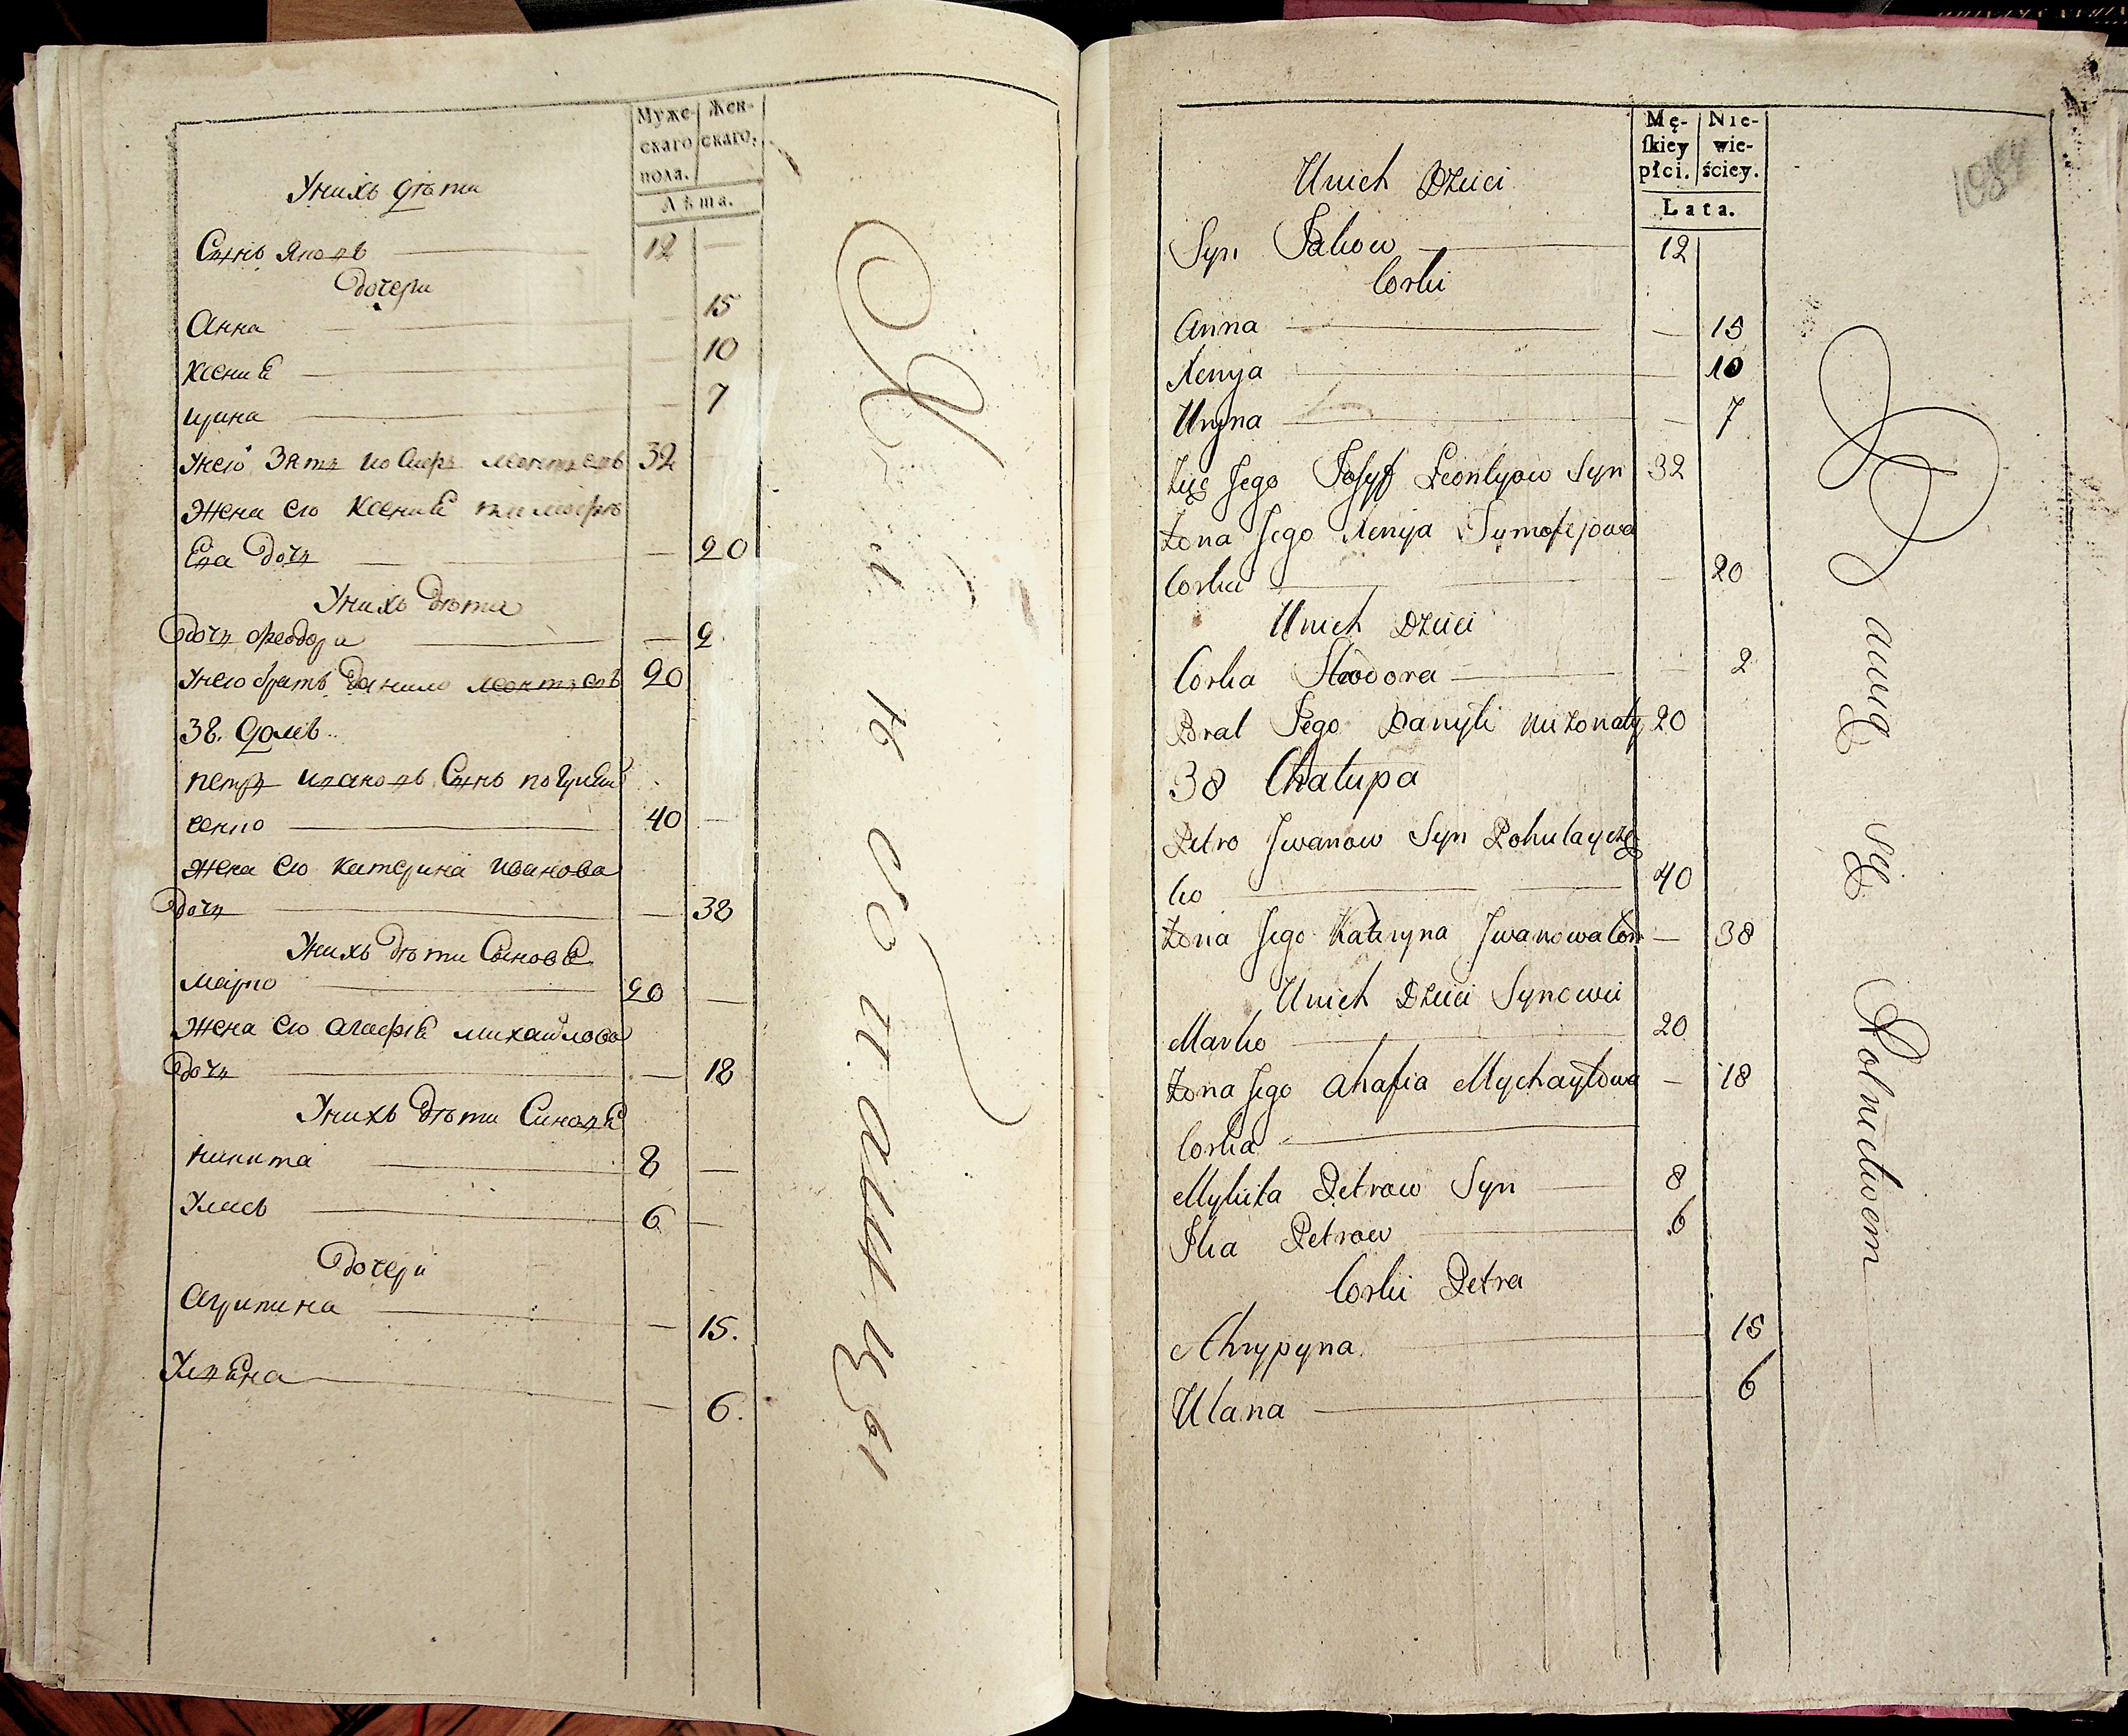 Муже-
скаго
пола.
Жен-
скаго.
Лѣта.
Унихъ дѣти
Сынъ Яковъ 12 —
дочери
Анна — 15
Ксения — 10
ирина — 7
унего Зять Иосифъ леонтьевъ 32
Жена его Ксения тимофѣ
ева дочь — 20
Унихъ дѣти
дочь феодора — 2
унего братъ данило леонтьевъ 20
38. домъ
петръ ивановъ Сынъ погулай
ченко 40 —
жена его катерина иванова
дочь — 38
Унихъ дѣти Сыновья
марко 20 —
жена его агафия михайлова
дочь — 18
Унихъ дѣти Синовья
никита 8 —
Уласъ 6 —
дочери
агрипина — 15.
Ульяна — 6.
Mę-
ſkiey
płci.
Nie-
wie-
ściey.
Lata.
1084
Unich Dzieci
Syn Jakow 12
Corki
Anna — 15
Xenya 10
Uryna — 7
Zięć Jego Josyf Leontyow Syn 32
Zona Jego Xenya Tymofejowa
Corka — 20
Unich Dzieci
Corka Teodora — 2
Brat Jego Danyło nieżonaty 20
38 Chałupa
Petro Jwanow Syn Pohulaycze
ko 40
Zona Jego Kateryna Jwanowa Cor — 38
Unich Dzieci Synowie
Marko 20
Zona Jego Ahafia Mychayłowa — 18
Corka
Mykita Petrow Syn 8
Ilia Petrow 6
Corki Petra
Ahrypyna 15
Ulana 6
Bawią się Rolnictwem